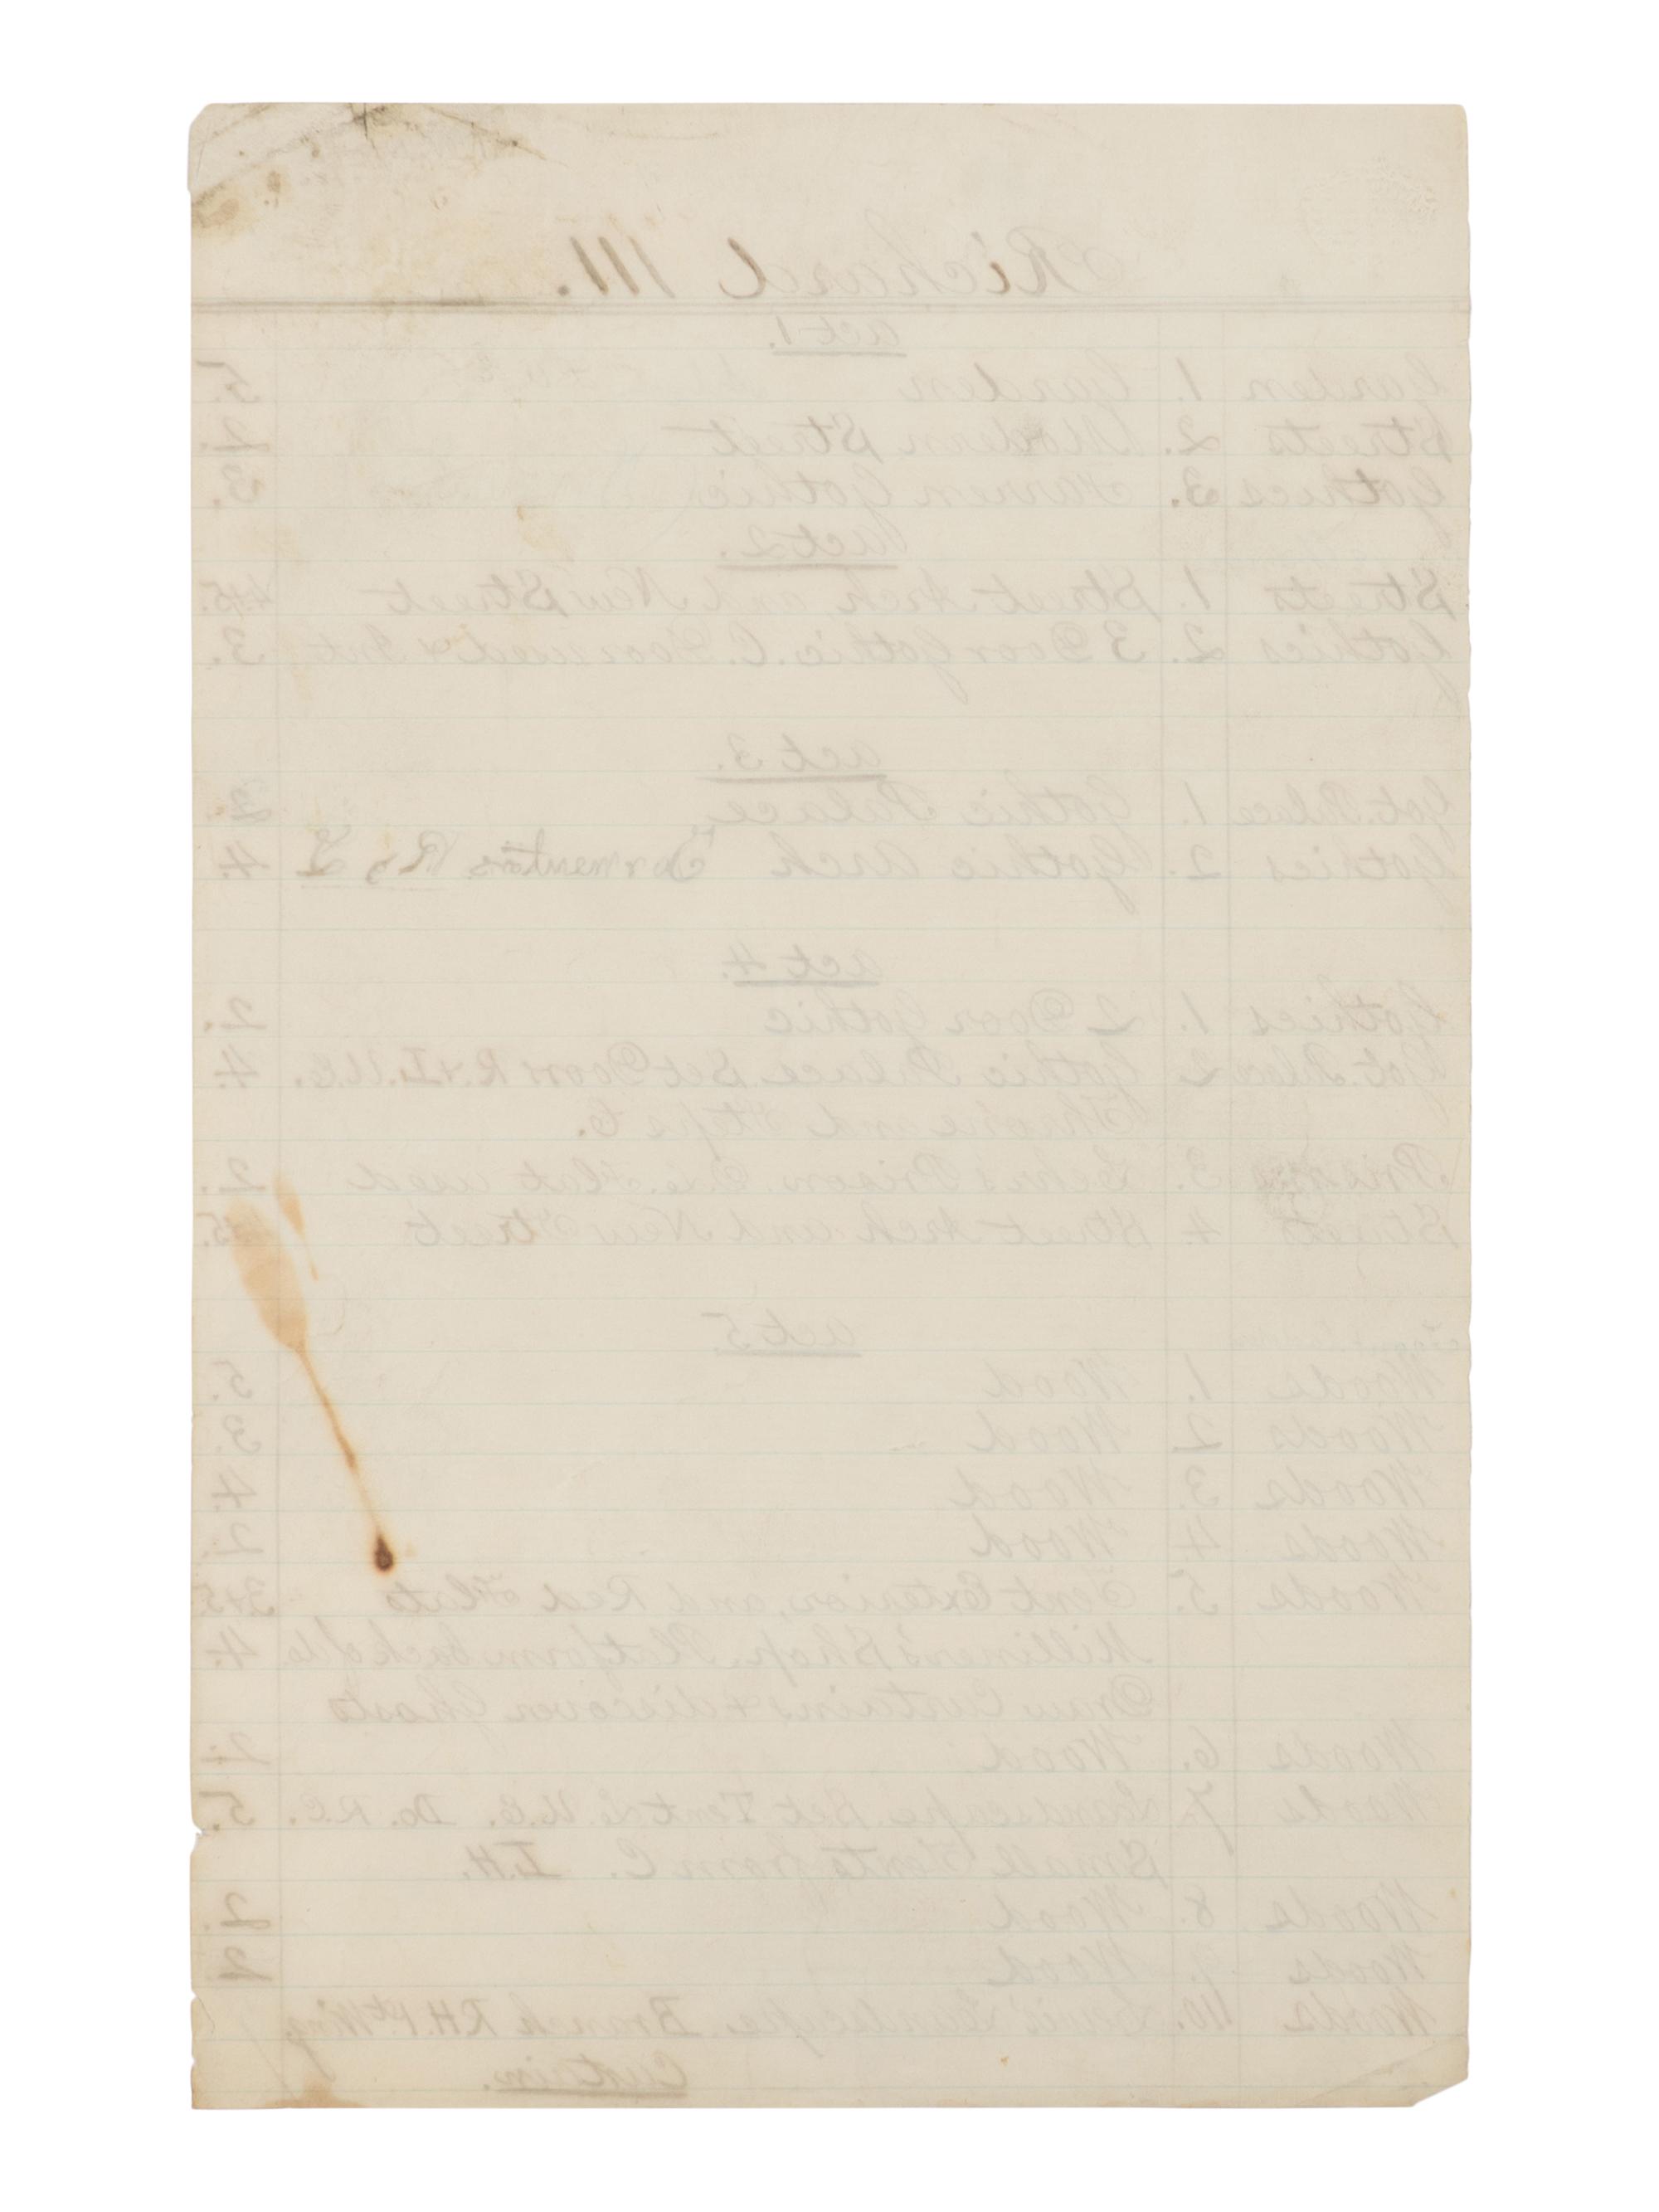 Richard III.
Act 1.
Garden 1. Garden 5.
Streets 2. Modern Street 2.
Gothics 3. Gothic 3.
Act 2.
Streets 1. Street Arch and New Street 4&5.
Gothics 2. 3 Door Gothic. C. Door used 3.
Act 3.
Got. Palace 1. Gothic Palace 2.
Gothics 2. Gothic Arch Tormentors R & L 4
Act 4
Gothics 1. 2 Door Gothic 2.
Got. Palace 2 Gothic Palace. Set Door R. & L. U. E. 4.
Throne and Steps C.
Prisons 3. Prison. One Flat used 2.
Streets 4 Street Arch and New Street 5.
Act 5
Woods 1. Wood 5.
Woods 2 Wood 3.
Woods 3. Wood 4.
Woods 4 Wood 2.
Woods 5. Tent Exterior, and Red Flats 3&5.
Milliner's Shop. Platform back of 4.
Draw Curtains & discover Ghosts
Woods 6. Wood 2.
Woods 7. Landscape. Set Tent L. U. E. Do. R. E. 5.
Small Tents from C. L.H.
Woods 8. Wood 2.
Woods 9. Wood 2
Woods 10. Landscape. Branch R.H. 1st Wing
Curtain.